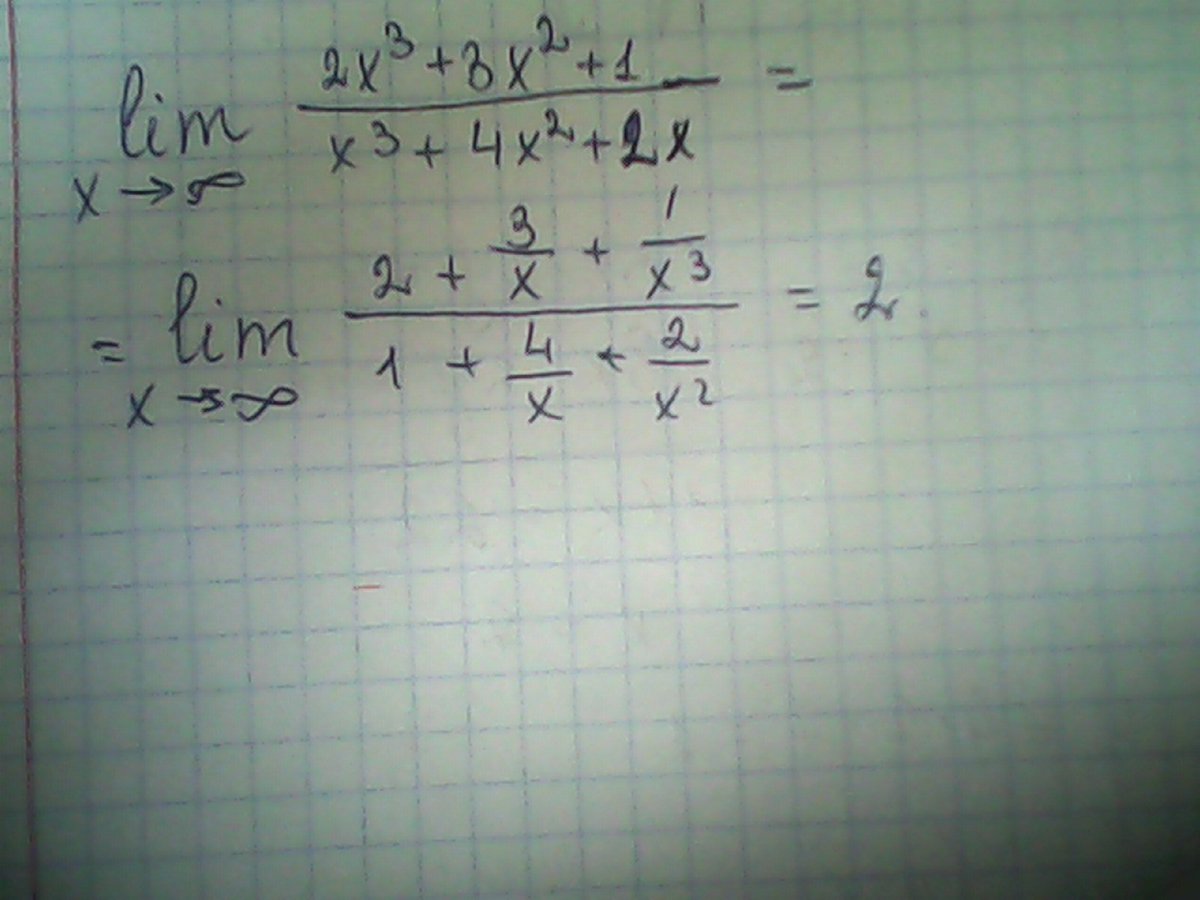 lim x→∞ (2x³+3x²+1)/(x³+4x²+2x) =
= lim x→∞ (2 + 3/x + 1/x³)/(1 + 4/x + 2/x²) = 2.